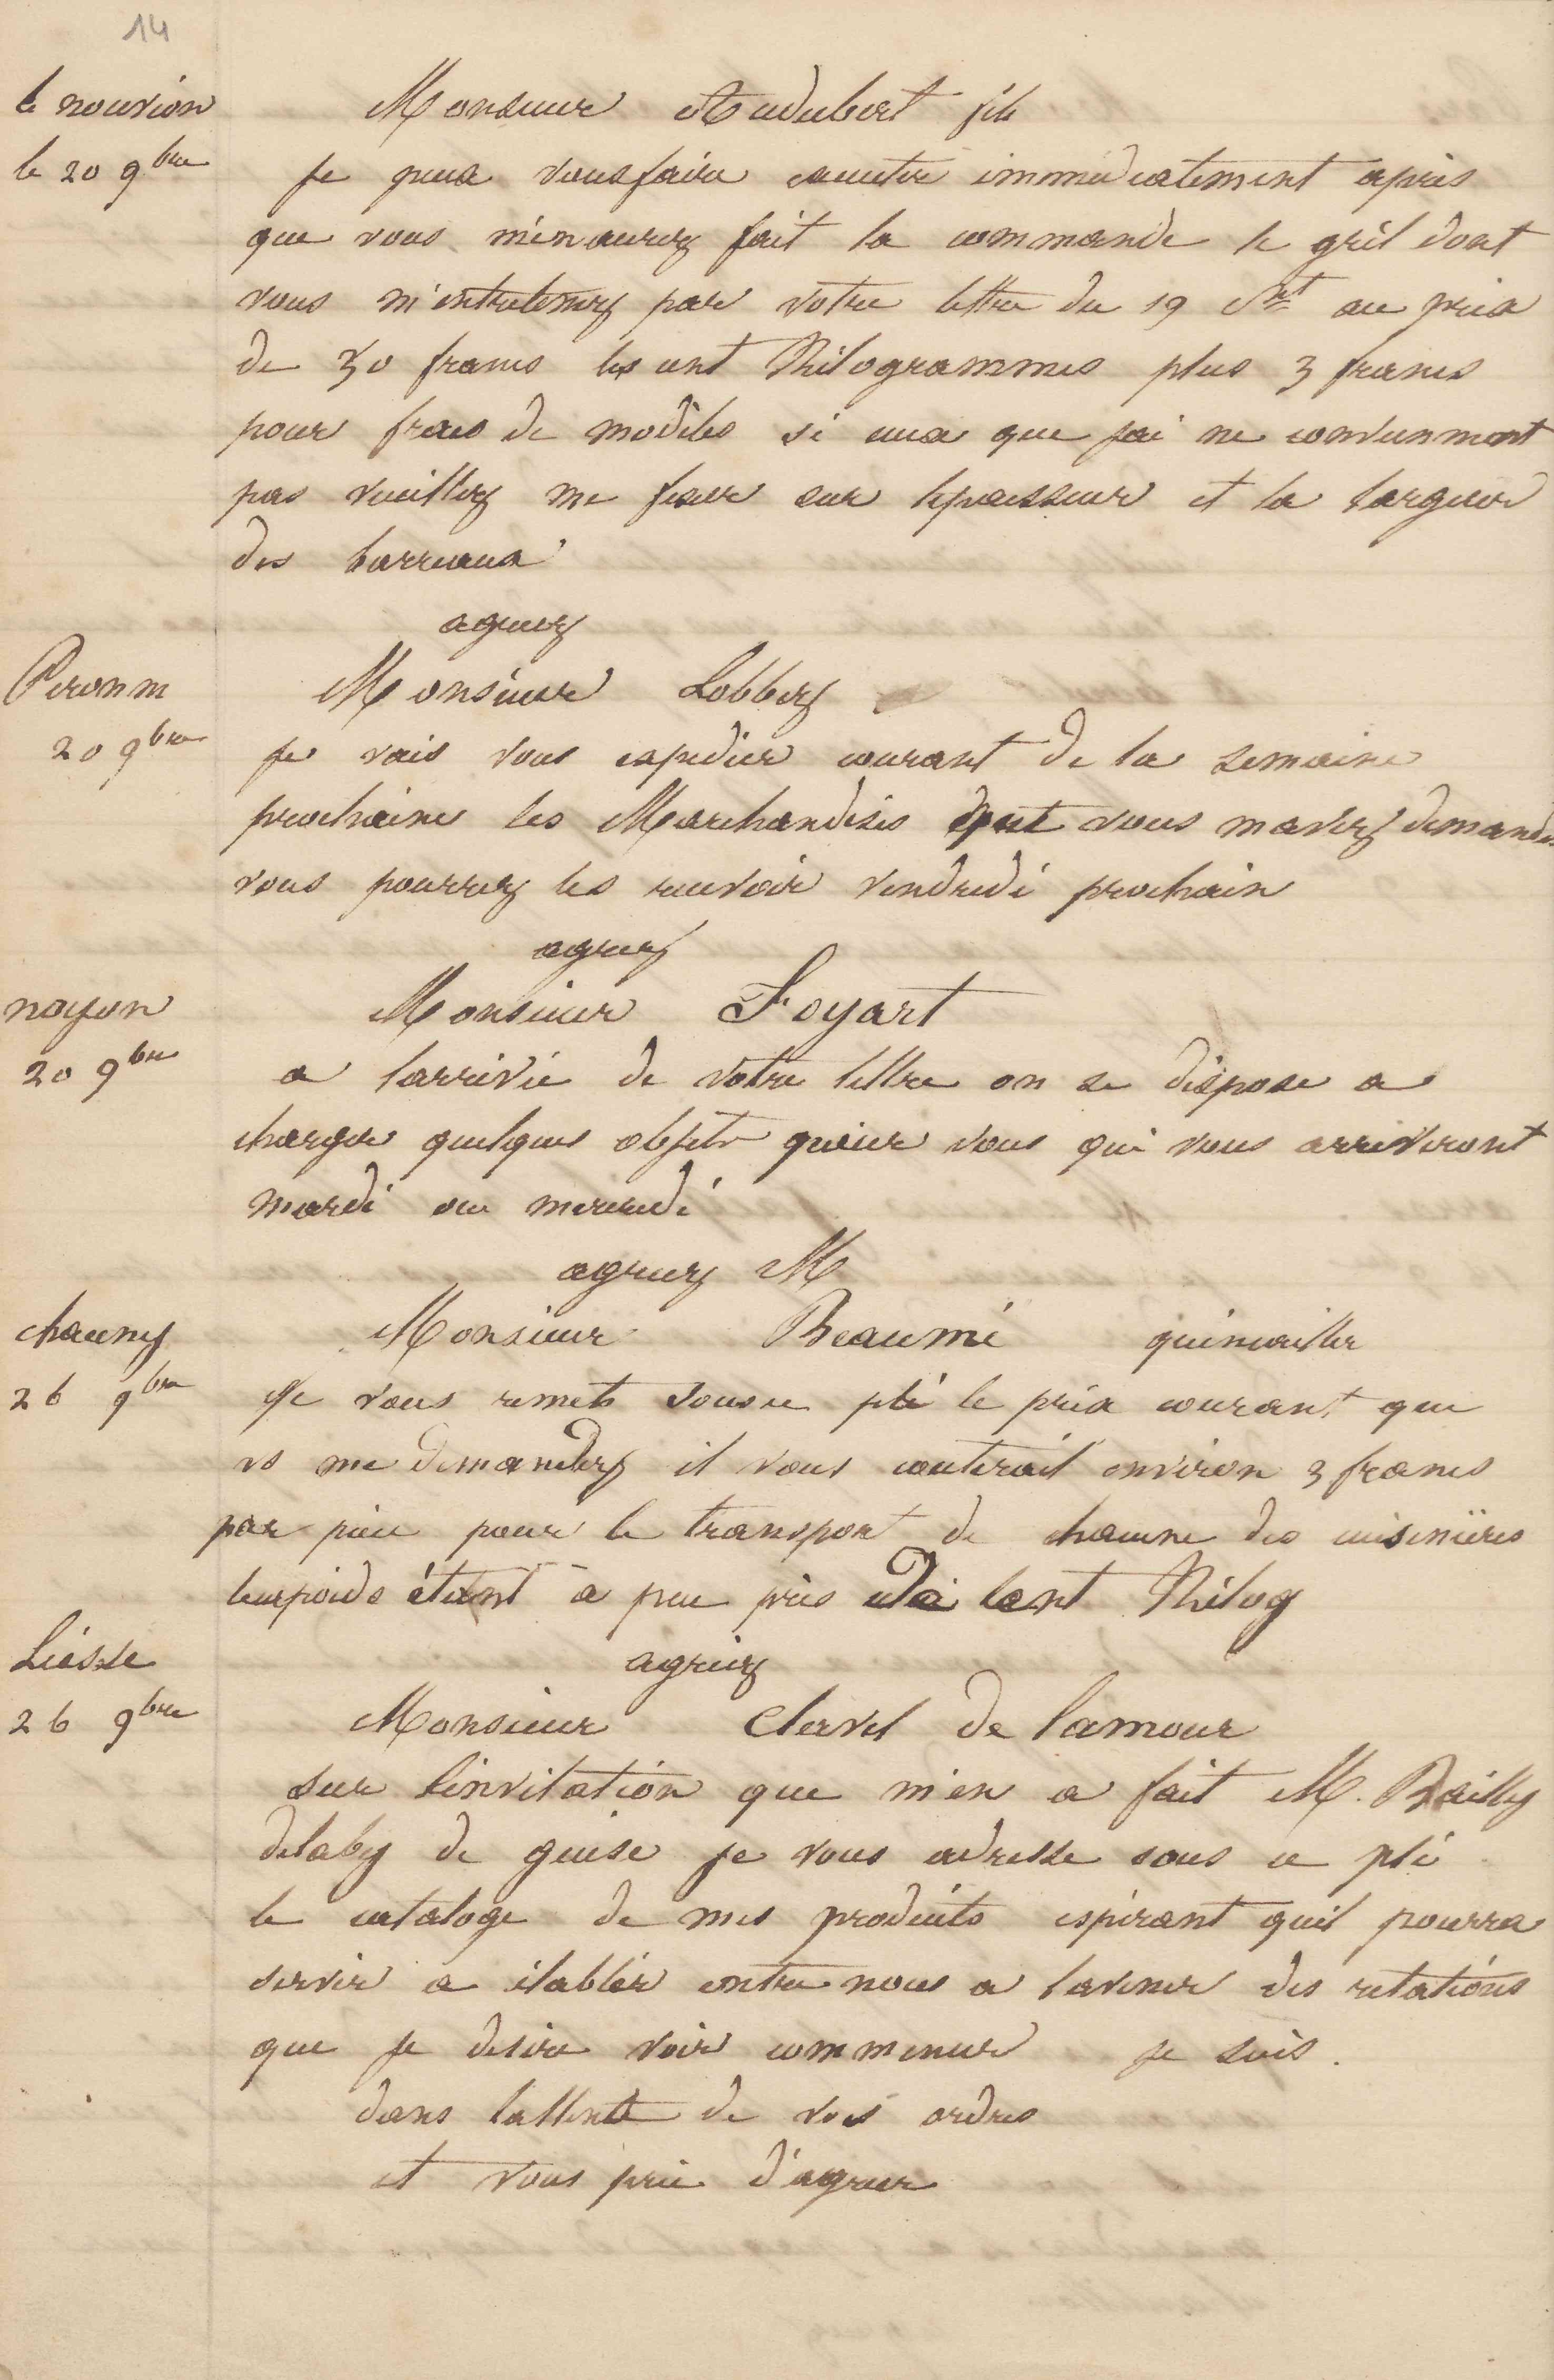 14
le nouvion
le 20 9bre
Monsieur Audubert fils
Je peux vous faire executer immediatement après
que vous m'en aurez fait la commande le gril dont
vous m'entretenez par votre lettre du 19 Ct au prix
de 50 francs les cent Kilogrammes plus 3 francs
pour frais de modèles si ceux que jai ne conviennent
pas veuillez me fixer sur lepaisseur et la largeur
des barreaux
agreez
Peronne
20 9bre
Monsieur Lobbez
Je vais vous expedier courant de la semaine
prochaine les Marchandises dont vous mavez demandés
vous pourrez les recevoir vendredi prochain
agreez
noyon
20 9bre
Monsieur Foyart
a larrivée de votre lettre on se dispose a
charger quelques objets pour vous qui vous arriveront
mardi ou mercredi
agreez M
chauny
26 9bre
Monsieur Beaumé quincailler
Je vous remets sous ce pli le prix courant que
vs me demandez il vous couterait environ 3 francs
par pièce pour le transport de chacune des cuisinières
leur poids étant à peu près de cent Kilog
agréez
Liesse
26 9bre
Monsieur Clervel de lamour
sur linvitation que m'en a fait M. Bailly
delaby de guise je vous adresse sous ce pli
le cataloge de mes produits espérant quil pourra
servir a établir entre nous a lavenir des relations
que je desire voir commencer je suis.
dans lattente de vos ordres
et vous prie d'agreer